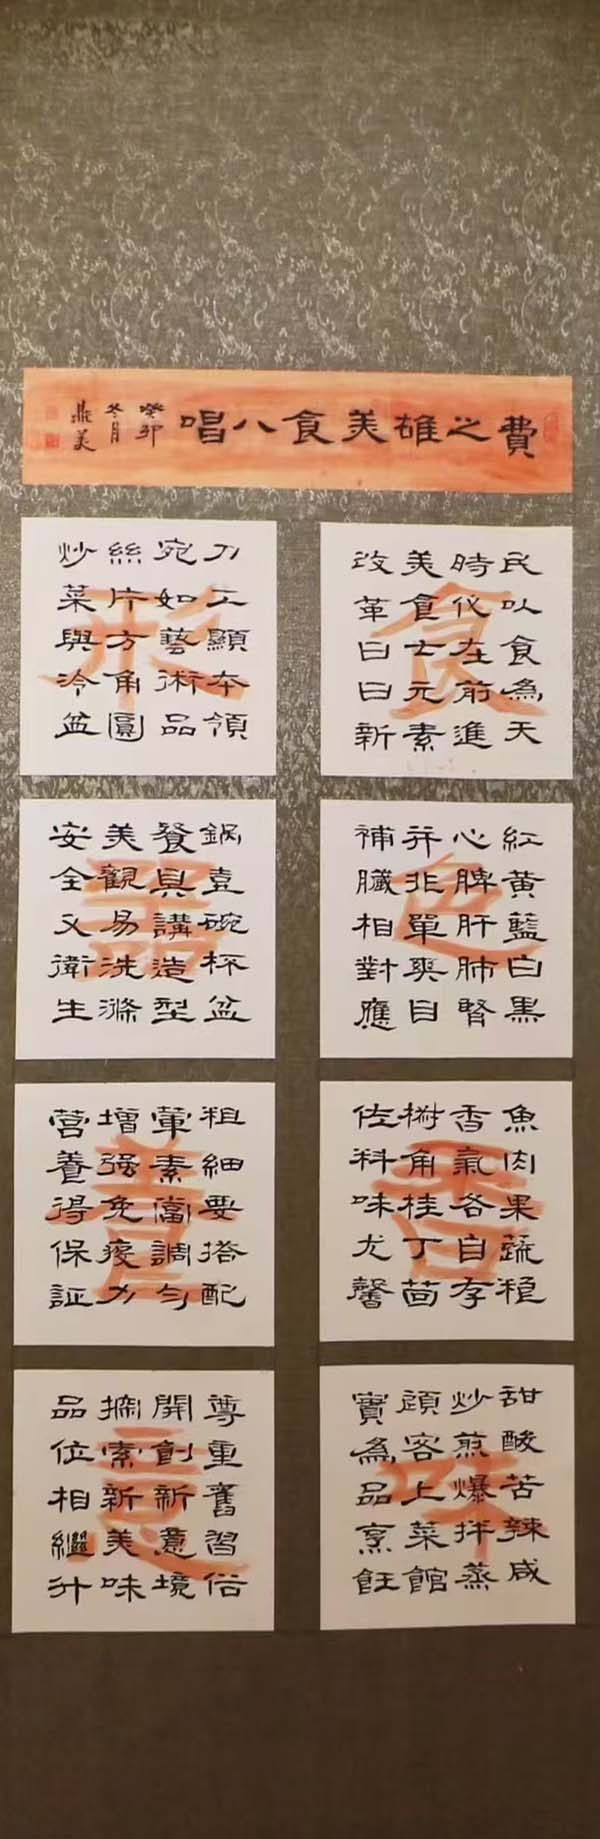 費之雄美食八唱
癸卯
冬月
食
民以食為天
時代在前進
美食七元素
改革日日新
色
紅黃藍白黑
心脾肝肺腎
并非單爽目
補臟相對應
香
魚肉果蔬種
香氣各自存
椒角桂丁茴
佐料味尤馨
味
甜酸苦辣咸
炒煎爆拌蒸
顧客上菜館
實為品烹飪
形
刀工顯本領
宛如藝術品
絲片方角圓
炒菜與冷盆
器
鍋壺碗杯盆
餐具講造型
美觀易洗滌
安全又衛生
養
粗細要搭配
葷素當調勻
增強免疫力
營養得保証
意
尊重舊習俗
開創新意境
探索新美味
品位相繼升